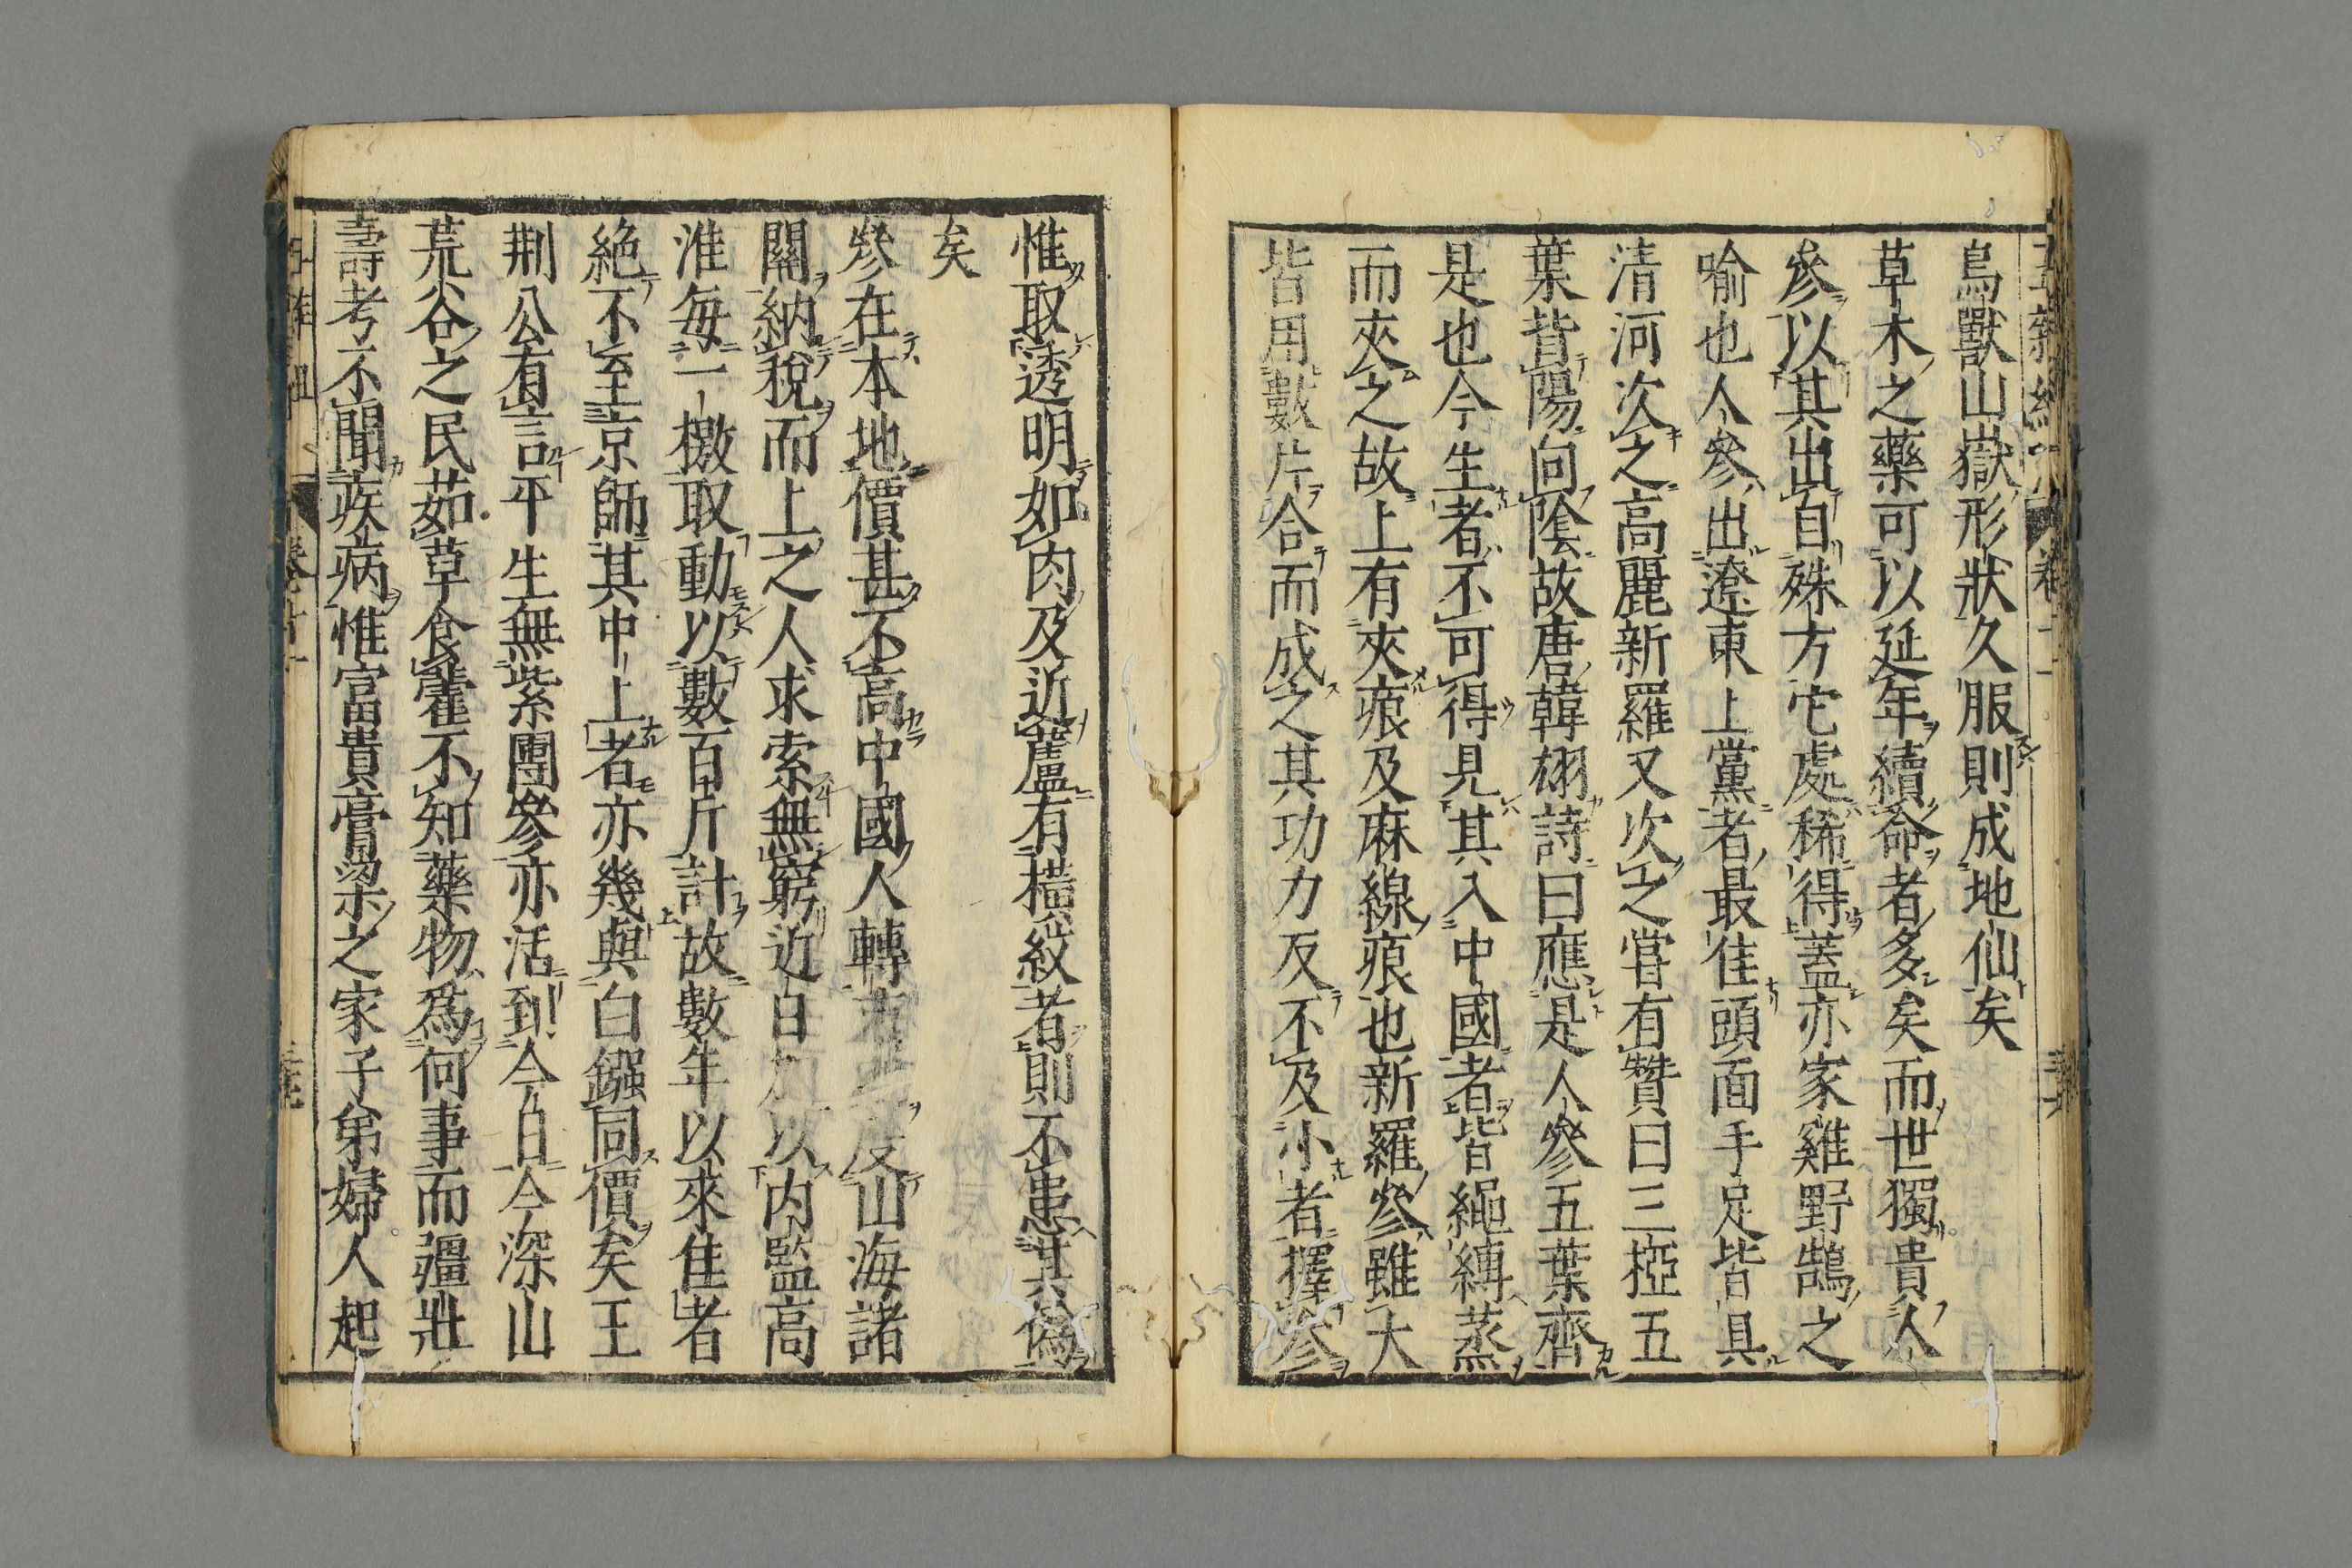 鳥獸山嶽形狀久服則成地仙矣
草木之藥可以延年續命者多矣而世獨貴人
參以其出自殊方它處稀得蓋亦家雞野鵠之
喻也人參出遼東上黨者最佳頭面手足皆具
清河次之高麗新羅又次之嘗有贊曰三椏五
葉背陽向陰故唐韓翃詩曰應是人參五葉齊
是也今生者不可得見其入中國者皆繩縛蒸
而夾之故上有夾痕及麻線痕也新羅參雖大
皆用數片合而成之其功力反不及小者擇參
惟取透明如肉及近蘆有橫紋者則不患其偽
矣
參在本地價甚不高中國人轉
度山海諸
關納稅而上之人求索無窮近日
以內監高
淮每一檄取動以數百斤計故數年以來佳者
絕不至京師其中上者亦幾與白鏹同價矣王
荆公有言平生無紫團參亦活到今日今深山
荒谷之民茹草食藿不知藥物為何事而彊壯
壽考不聞疾病惟富貴膏梁之家子弟婦人起